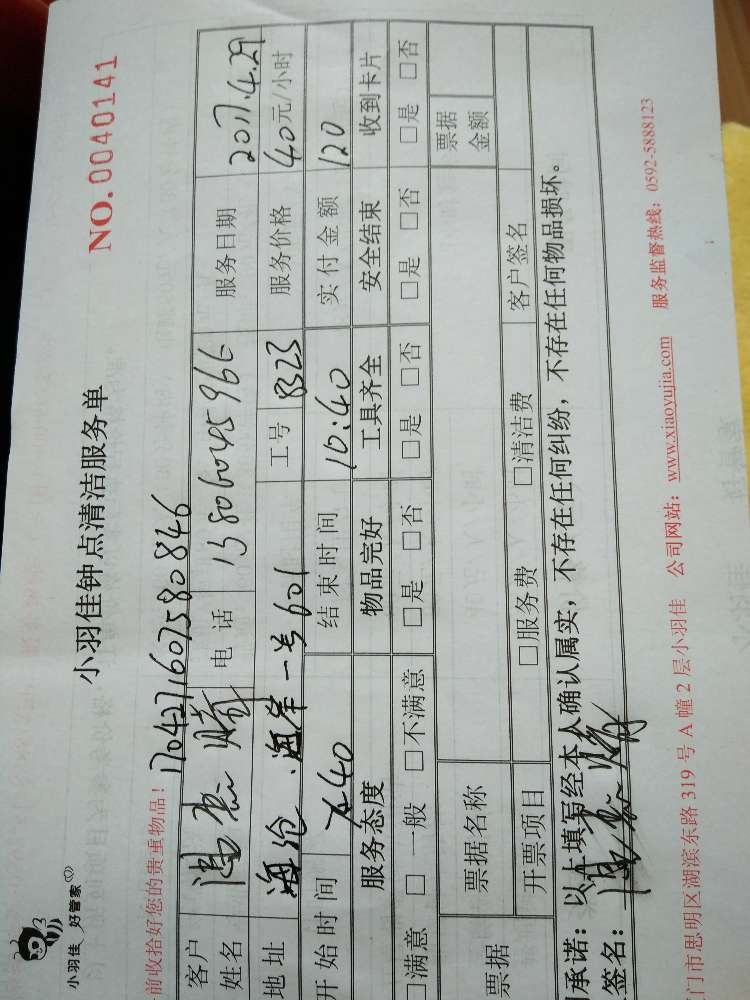 小羽佳 好管家
小羽佳钟点清洁服务单
NO.0040141
前收拾好您的贵重物品！ 1704271607580846
客户姓名 电话 13806045966 服务日期 2017.4.29
地址 海沧.海岸一号601 工号 8323 服务价格 40元/小时
开始时间 7:40 结束时间 10:40 实付金额 120
服务态度 物品完好 工具齐全 安全结束 收到卡片
□满意 □一般 □不满意 □是 □否 □是 □否 □是 □否 □是 □否
票据 票据名称 票据金额
开票项目 □服务费 □清洁费 客户签名
承诺：以上填写经本人确认属实，不存在任何纠纷，不存在任何物品损坏。
签名：
门市思明区湖滨东路 319 号 A 幢 2 层小羽佳 公司网站：www.xiaoyujia.com 服务监督热线：0592-5888123